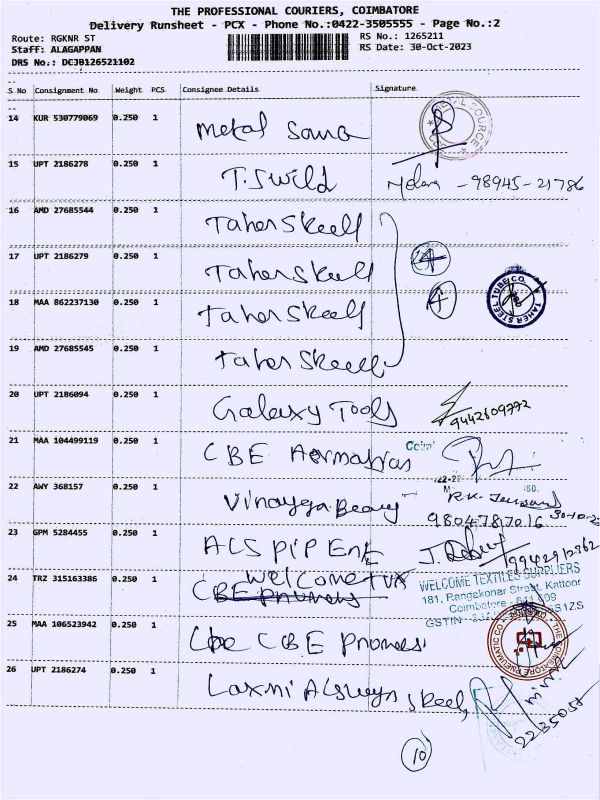 THE PROFESSIONAL COURIERS, COIMBATORE
Delivery Runsheet - PCX - Phone No.:0422-3505555 - Page No.:2
Route: RGKNR ST
RS No.: 1265211
Staff: ALAGAPPAN
RS Date: 30-Oct-2023
DRS No.: DCJB126521102
S No Consignment No Weight PCS Consignee Details Signature
14 KUR 530779069 0.250 1 Metal
15 UPT 2186278 0.250 1 T.Swild - 98945-21786
16 AMD 27685544 0.250 1 Taher Skeell
17 UPT 2186279 0.250 1 Taher Skeell 4
18 MAA 862237130 0.250 1 Taher Skeell 4
TAHER STEEL TUBE CO.
19 AMD 27685545 0.250 1 Taher Skeell
20 UPT 2186094 0.250 1 Galaxy Tools 9442609772
21 MAA 104499119 0.250 1 CBE
22 AWY 368157 0.250 1 Vinayega
9804787016
23 GPM 5284455 0.250 1 ACS PIP
24 TRZ 315163386 0.250 1 Welcome Tux
WELCOME TEXTILES SUPPLIERS
181, Rangakonar Street, Kattoor
Coimbatore
GSTIN
25 MAA 106523942 0.250 1 CBE
26 UPT 2186274 0.250 1 Laxmi
10